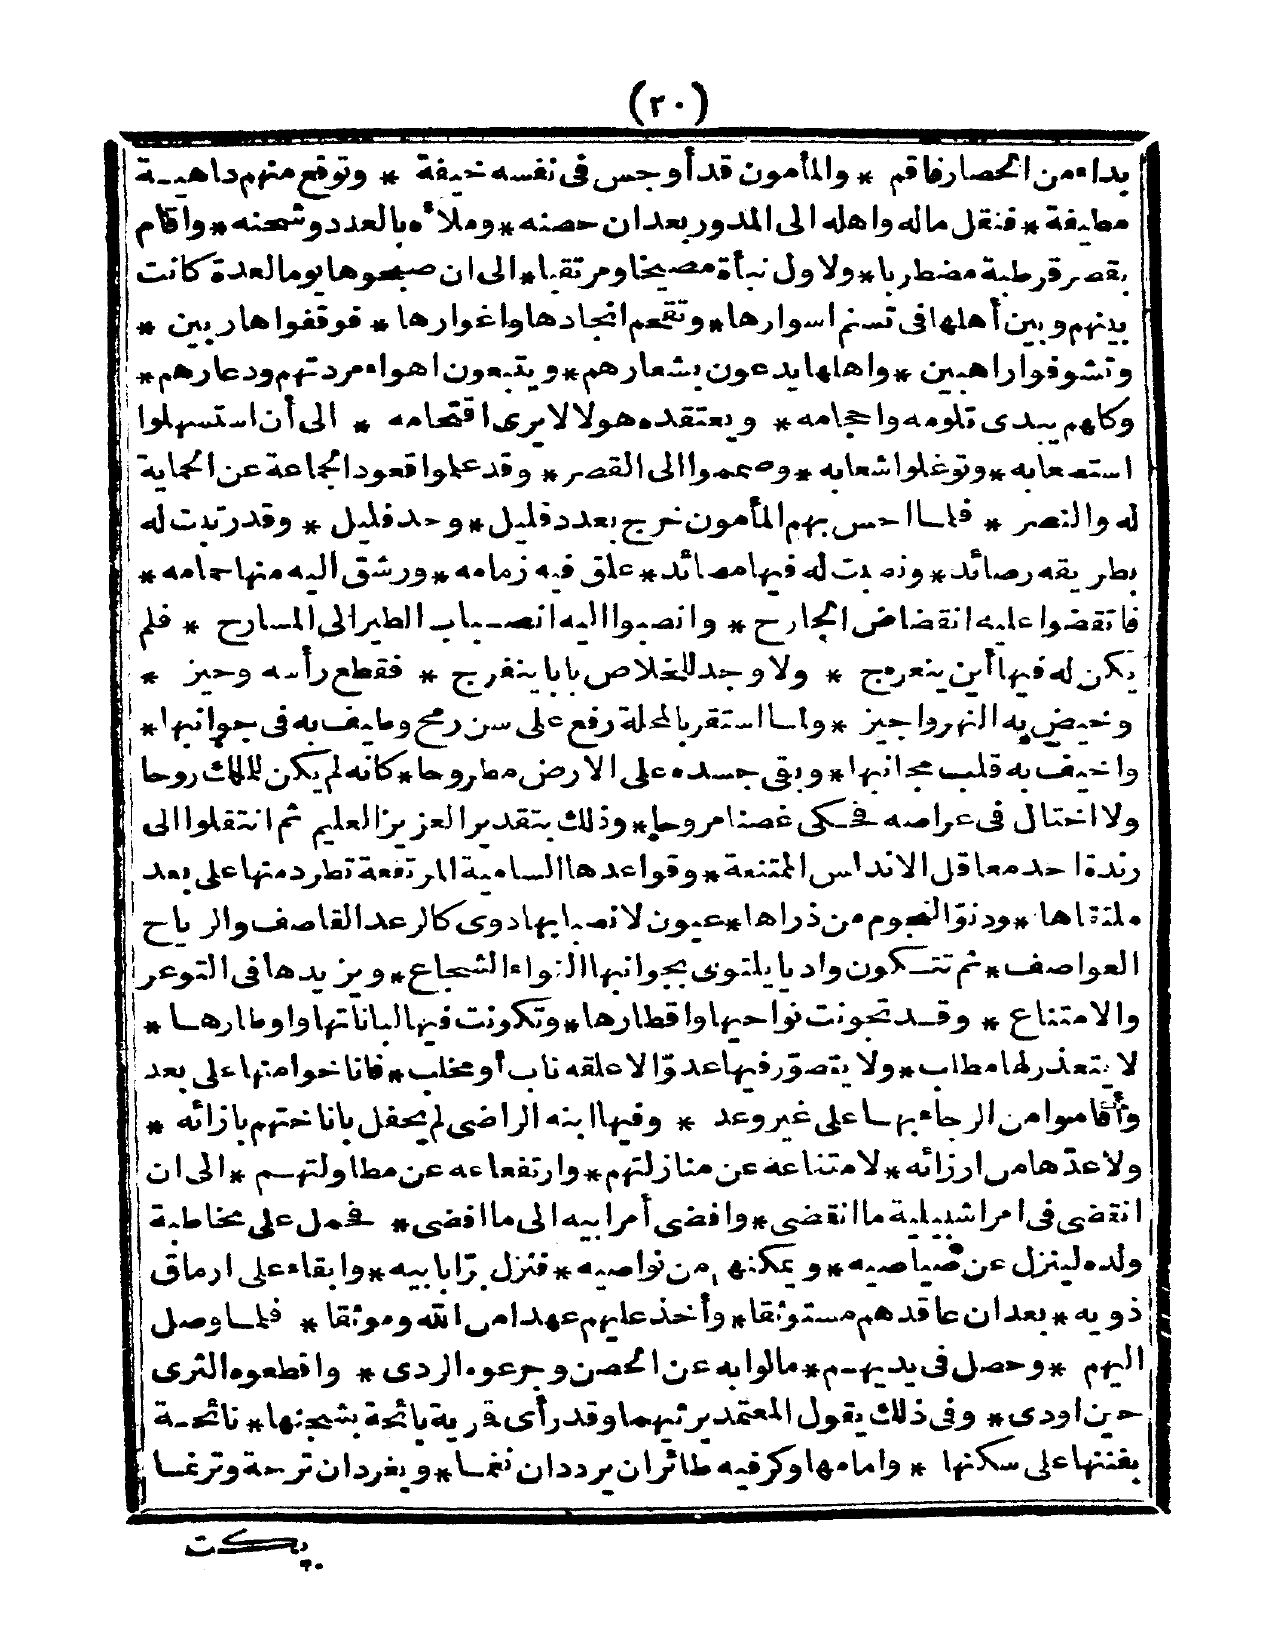 (٢٠)
بداء من الحصار فاقم * والمأمون قد أوجس فى نفسه خيفة * وتوقع منهم داهية
مطيفة * فنقل ماله واهله الى المدور بعد ان حصنه * وملأه بالعدد وشحنه * واقام
بقصر قرطبة مضطربا * ولاول نبأة مصيخا ومرتقبا * الى ان صبحوها يوما لعدة كانت
بينهم وبين أهلها فى تسنم اسوارها * وتقحم انجادها واغوارها * فوقفوا هاربين *
وتشوفوا راهبين * واهلها يدعون بشعارهم * ويتبعون اهواء مردتهم ودعارهم *
وكلهم يبدى تلومه واحجامه * ويعتقده هولا لا يرى اقتحامه * الى أن استسهلوا
استصعابه * وتوغلوا شعابه * وصمموا الى القصر * وقد علموا قعود الجماعة عن الحماية
له والنصر * فلما احس بهم المأمون خرج بعدد قليل * وحد فليل * وقد رتبت له
بطريقه رصائد * ونصبت له فيها مصائد * علق فيه زمامه * ورشق اليه منها حمامه *
فانقضوا عليه انقضاض الجارح * وانصبوا اليه انصباب الطير الى المسارح * فلم
يكن له فيها أين ينعرج * ولا وجد للخلاص بابا ينفرج * فقطع رأسه وحيز *
وخيض به النهر واجيز * ولما استقر بالمحلة رفع على سن رمح وطيف به فى جوانبها *
واخيف به قلب مجانبها * وبقى جسده على الارض مطروحا * كانه لم يكن للملك روحا
ولا اختال فى عراصه فحكى غصنا مروحا * وذلك بتقدير العزيز العليم ثم انتقلوا الى
رندة احد معاقل الاندلس الممتنعة * وقواعدها السامية المرتفعة تطرد منها على بعد
ملتقاها * ودنو النجوم من ذراها * عيون لانصبابها دوى كالرعد القاصف والرياح
العواصف * ثم تتكون واديا يلتوى بجوانبها التواء الشجاع * ويزيدها فى التوعر
والامتناع * وقد تجونت نواحيها واقطارها * وتكونت فيها لباناتها واوطارها *
لا يتعذر لها مطلب * ولا يتصور فيها عدو الا علقه ناب أو مخلب * فاناخوا منها على بعد
وأقاموا من الرجاء بها على غير وعد * وفيها ابنه الراضى لم يحفل باناختهم بازائه *
ولا عدها من ارزائه * لامتناعه عن منازلتهم * وارتفاعه عن مطاولتهم * الى ان
انقضى فى امر اشبيلية ما انقضى * وافضى أمر ابيه الى ما افضى * فحمل على مخاطبة
ولده لينزل عن صياصيه * ويمكنهم من نواصيه * فنزل برا بابيه * وابقاء على ارماق
ذويه * بعد ان عاقدهم مستوثقا * وأخذ عليهم عهدا من الله وموثقا * فلما وصل
اليهم * وحصل فى يديهم * مالوا به عن الحصن وجرعوه الردى * واقطعوه الثرى
حين اودى * وفى ذلك يقول المعتمد يرثيهما وقد رأى قمرية بائحة بشجنها * نائحة
بفننها على سكنها * وامامها وكر فيه طائران يرددان نغما * ويغردان ترحة وترغما
بكت